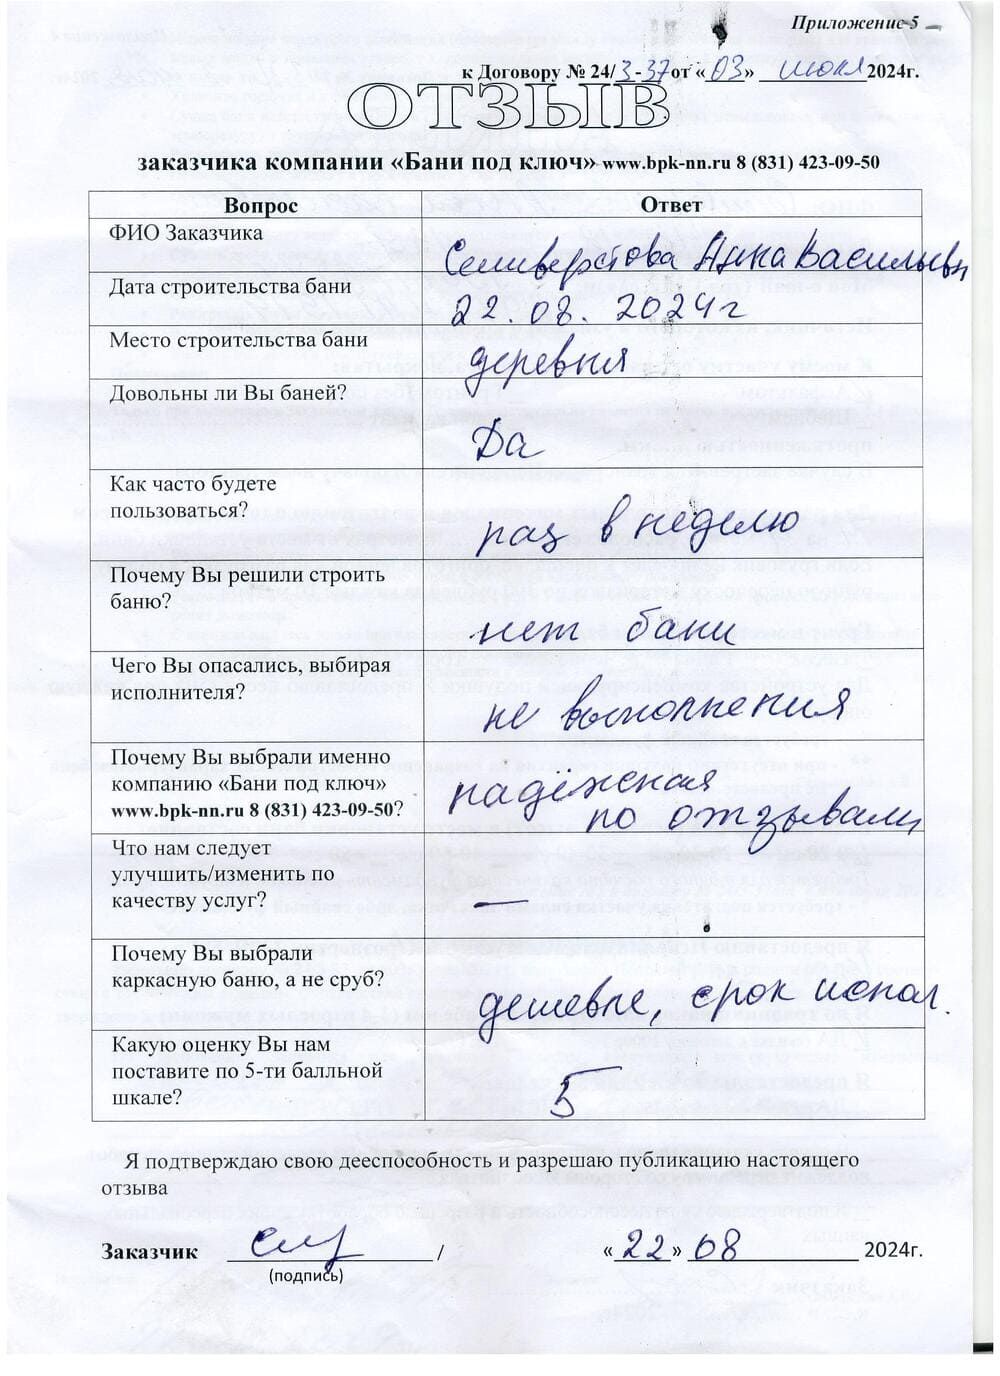 Приложение 5
к Договору № 24/3-37от «03» июля 2024г.
ОТЗЫВ
заказчика компании «Бани под ключ» www.bpk-nn.ru 8 (831) 423-09-50
Вопрос Ответ
ФИО Заказчика
Селиверстова Анна Васильевн
Дата строительства бани
22.08.2024г
Место строительства бани
деревня
Довольны ли Вы баней?
Да
Как часто будете
пользоваться?
раз в неделю
Почему Вы решили строить
баню?
нет бани
Чего Вы опасались, выбирая
исполнителя?
не выполнения
Почему Вы выбрали именно
компанию «Бани под ключ»
www.bpk-nn.ru 8 (831) 423-09-50?
надёжная
по отзывам
Что нам следует
улучшить/изменить по
качеству услуг?
—
Почему Вы выбрали
каркасную баню, а не сруб?
дешевле, срок испол.
Какую оценку Вы нам
поставите по 5-ти балльной
шкале?
5
Я подтверждаю свою дееспособность и разрешаю публикацию настоящего
отзыва
Заказчик / «22» 08 2024г.
(подпись)